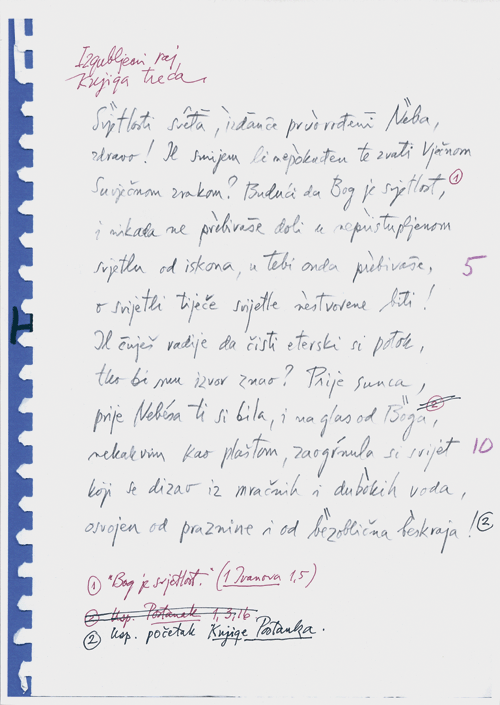 Izgubljeni raj
Knjiga treća
Svjȅtlosti světā, ìzdānče prvorođenī Nȅba,
zdravo! Il smijem li nepokuđen te zvati Vječnom
Suvječnom zrakom? Budući da Bog je svjetlost, ①
i nikada ne prèbivāše doli u nepristupljenom
svjetlu od iskona, u tebi onda prèbivāše, 5
o svijetli tiječe svijetle nèstvorene biti!
Il čuješ radije da čisti eterski si potok,
tko bi mu izvor znao? Prije sunca,
prije Nebésa ti si bila, i na glas od Bȍga, ②
nekakvim kao plaštom, zaogŕnula si svijet 10
koji se dizao iz mračnih i dubòkih voda,
osvojen od praznine i od bȅzoblična bȅskraja! ②
① "Bog je svjetlost." (1 Ivanova 1,5)
② Usp. Postanak 1,3;16
② Usp. početak Knjige Postanka.